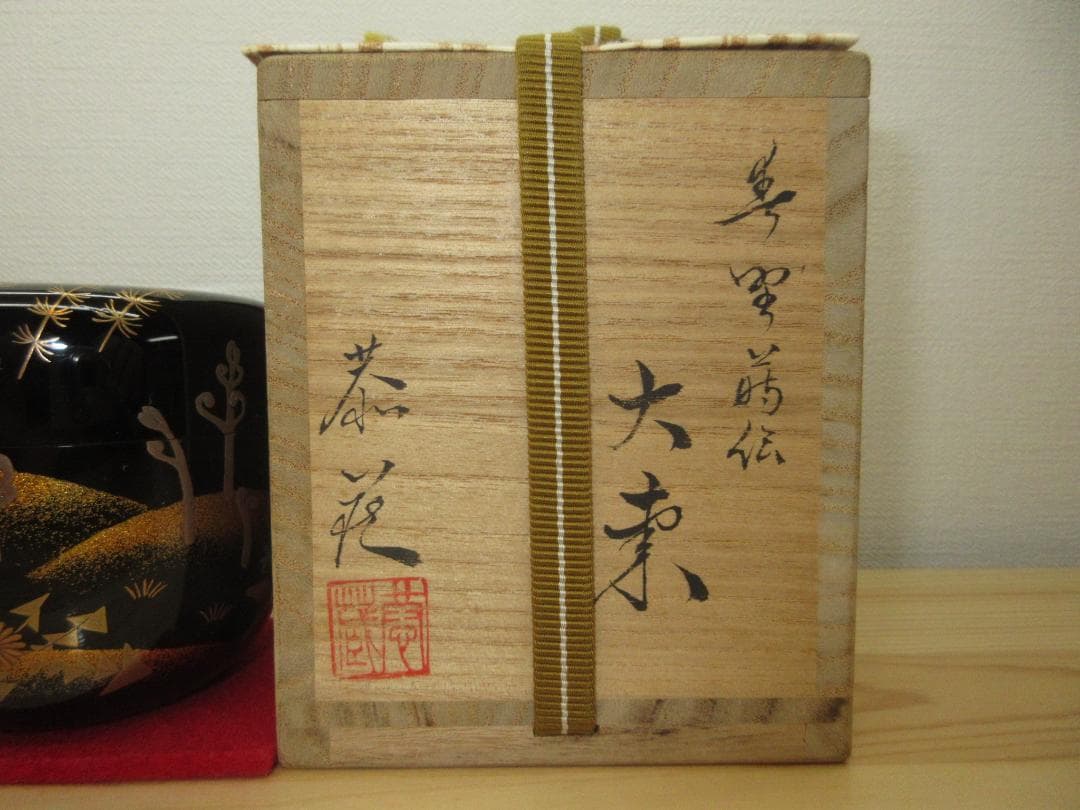 春野蒔絵
大棗
恭